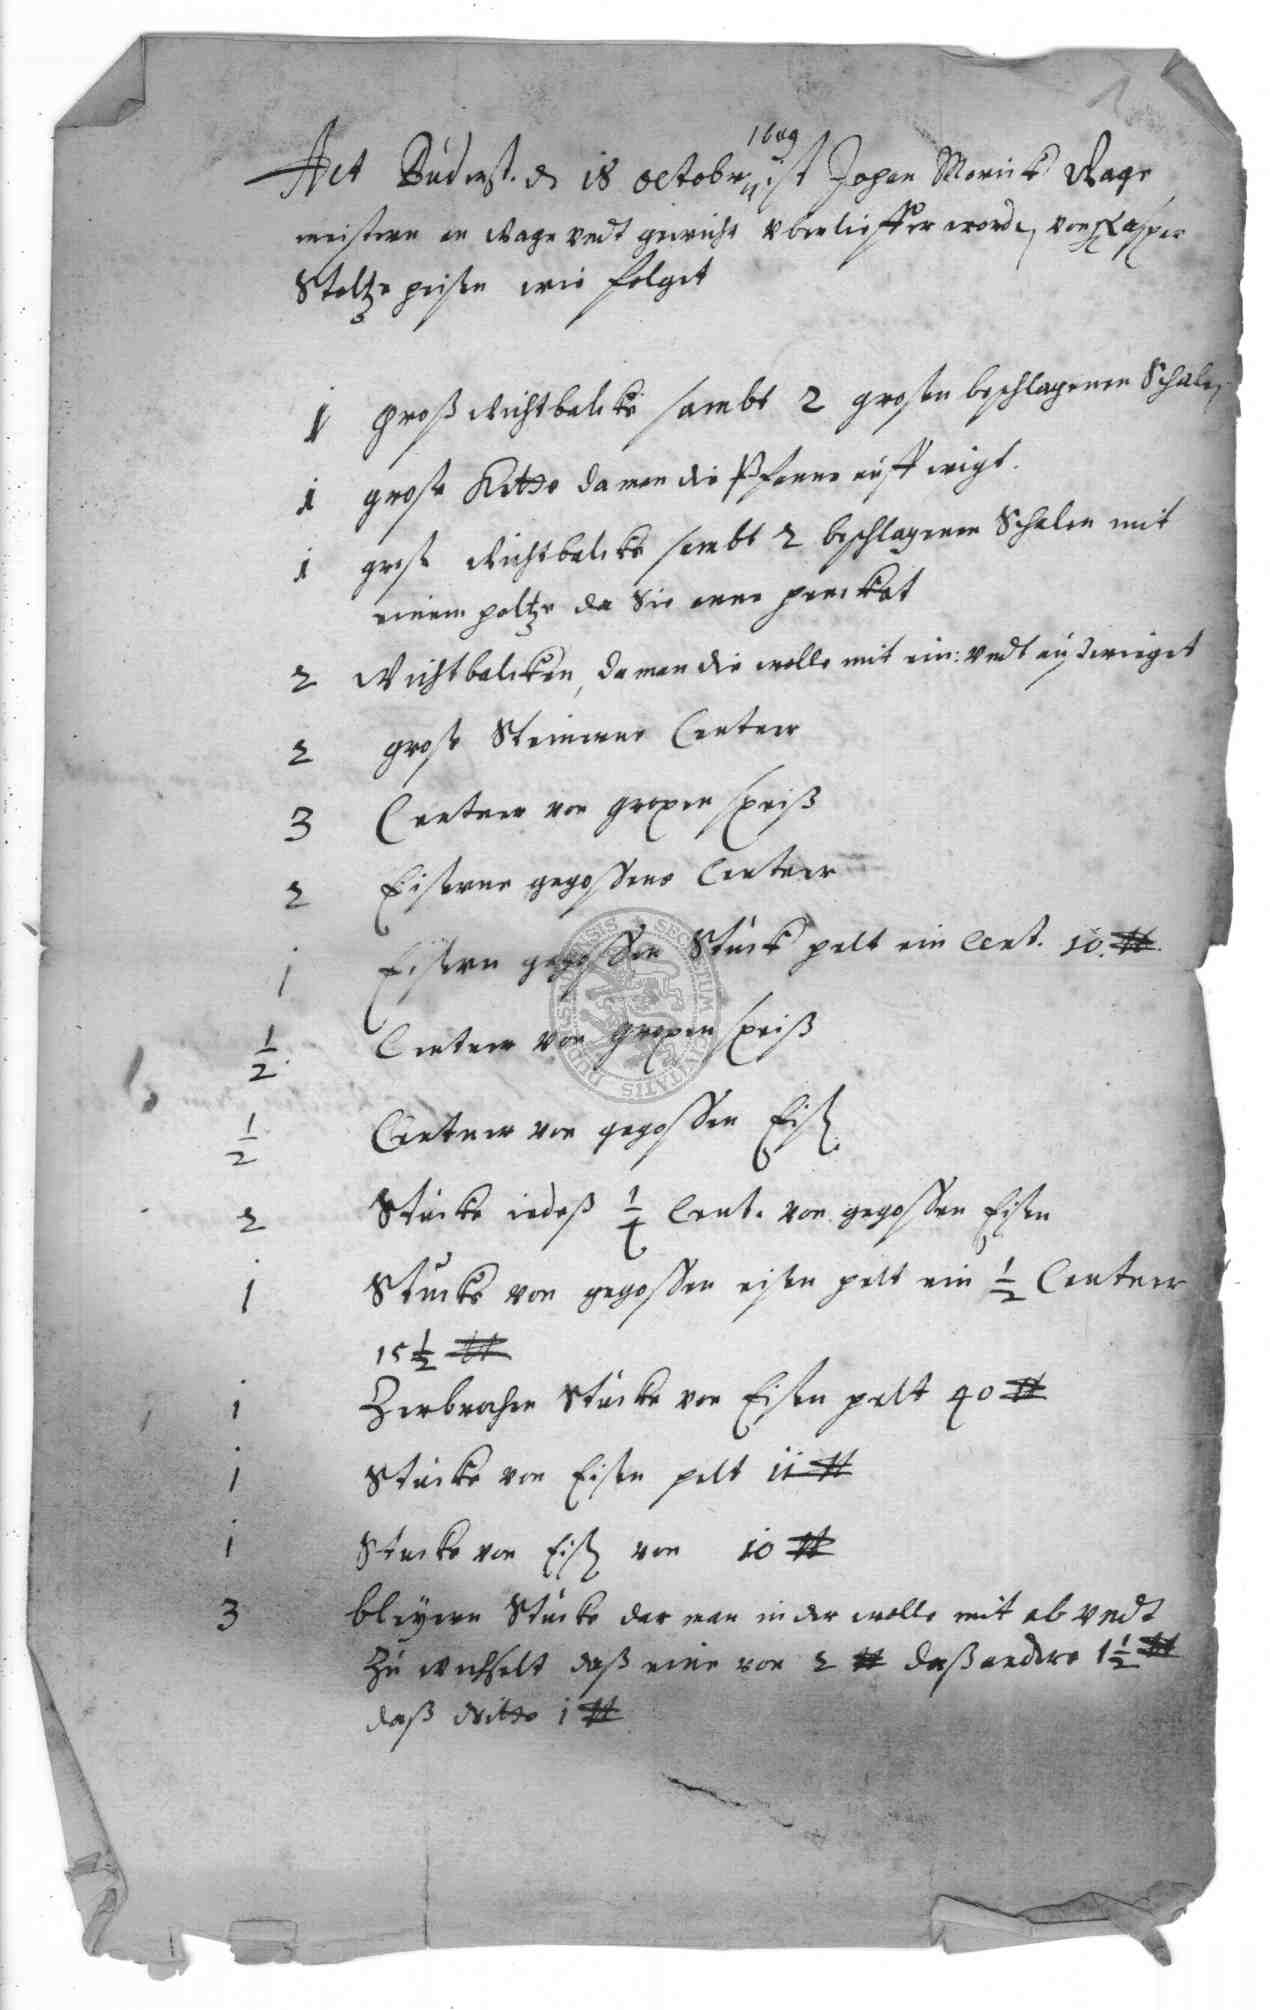 1649
Act Düderst. d 18 octobr ist Johan Morick Wage
meistern an Wage vndt gewicht vberlieffer word, von Casper
Stoltze heisen wie folget
1 groß Wichtbalcke sambt 2 großen beschlagenen Schale,
1 große Kette da man die Pfanne auff wigt.
1 große Wichtbalcke sambt 2 beschlagenen Schalen mit
einem holtze da Sie anne hencket
2 Wichtbalcken, da man die wolle mit ein: vndt außwieget
2 große Steinerne Centner
3 Centner von gropen speiß
2 Eiserne gegossene Centner
1 Eisern gegossen Stück helt ein Cent. 10 ℔.
1/2 Centner von gropen speiß
1/2 Centner von gegossen Eiß
2 Stücke iedeß 1/4 Cent. von gegossen Eisen
1 Stucke von gegossen eisen helt ein 1/2 Centner
15 1/2 ℔
1 Zerbrochen Stücke von Eisen helt 40 ℔
1 Stücke von Eisen helt 11 ℔
1 Stucke von Eiß von 10 ℔
3 bleyern Stücke dar man in der wolle mit ab vndt
Zu wechselt daß eine von 2 ℔ daß andere 1 1/2 ℔
daß dritte 1 ℔
SECRETUM CIVITATIS DUDERSTADENSIS